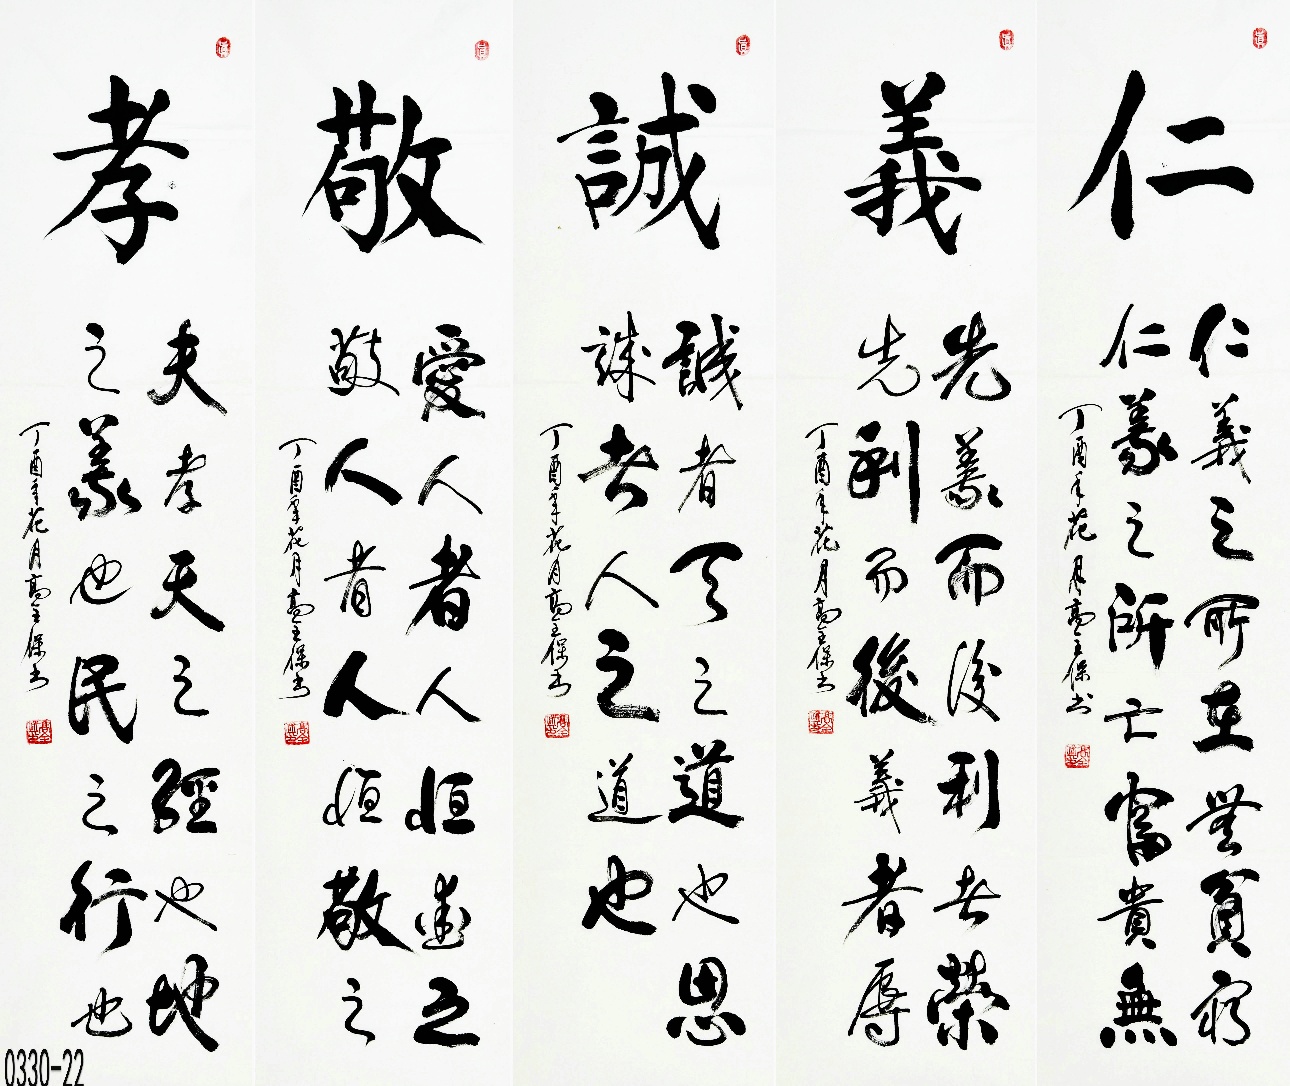 仁
仁義之所在無貧窮
仁義之所亡富貴無
丁酉年花月高保书
義
先義而後利者榮
先利而後義者辱
丁酉年花月高保书
誠
誠者天之道也思
誠者人之道也
丁酉年花月高保书
敬
愛人者人恒愛之
敬人者人恒敬之
丁酉年花月高保书
孝
夫孝天之經也地
之義也民之行也
丁酉年花月高保书
0330-22